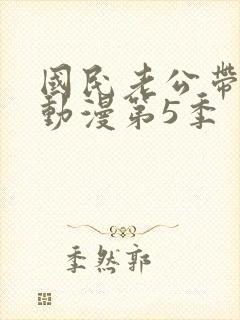 國民老公帶
動漫第5季
季然郭